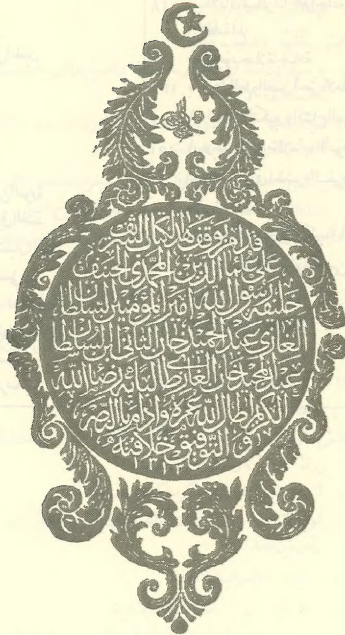 قد امر بوقف هذا الكتاب الشريف
على علماء الدين المحمدي الحنيف
خليفة رسول الله امير المؤمنين السلطان
الغازي عبد الحميد خان الثاني ابن السلطان
عبد المجيد خان الغازي طالبا به رضا الله
الكريم اطال الله عمره وادام بالنصر
والتوفيق خلافته
١٣١٢